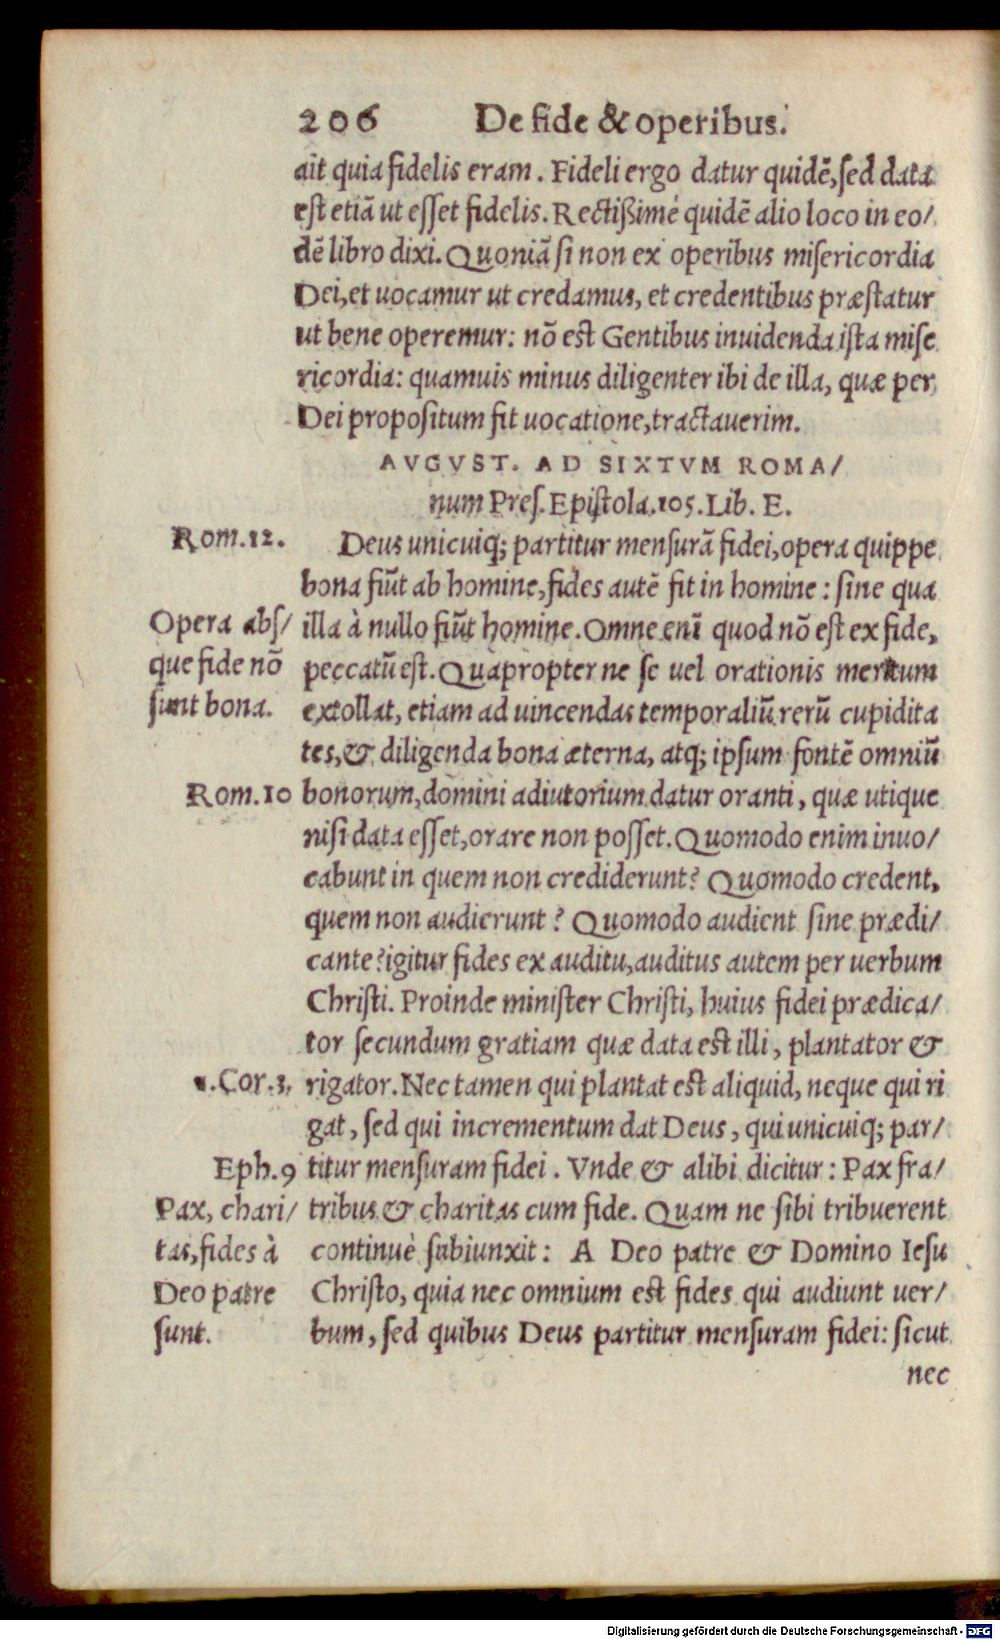 206 De fide & operibus.
ait quia fidelis eram. Fideli ergo datur quidē, ſed data
eſt etiā ut eſſet fidelis. Rectißimè quidē alio loco in eo/
dē libro dixi. Quoniā ſi non ex operibus miſericordia
Dei, et uocamur ut credamus, et credentibus præſtatur
ut bene operemur: nō eſt Gentibus inuidenda iſta miſe
ricordia: quamuis minus diligenter ibi de illa, quæ per
Dei propoſitum fit uocatione, tractauerim.
AVGVST. AD SIXTVM ROMA/
num Preſ. Epiſtola. 105. Lib. E.
Rom. 12.
Deus unicuiq; partitur menſurā fidei, opera quippe
bona fiūt ab homine, fides autē fit in homine: ſine qua
Opera abſ/
que fide nō
ſunt bona.
illa à nullo fiūt homine. Omne enī quod nō eſt ex fide,
peccatū eſt. Quapropter ne ſe uel orationis meritum
extollat, etiam ad uincendas temporaliū rerū cupidita
tes, & diligenda bona æterna, atq; ipſum fontē omniū
Rom. 10
bonorum, domini adiutorium datur oranti, quæ utique
niſi data eſſet, orare non poſſet. Quomodo enim inuo/
cabunt in quem non crediderunt? Quomodo credent,
quem non audierunt? Quomodo audient ſine prædi/
cante? igitur fides ex auditu, auditus autem per uerbum
Chriſti. Proinde miniſter Chriſti, huius fidei prædica/
tor ſecundum gratiam quæ data eſt illi, plantator &
1. Cor. 3.
rigator. Nec tamen qui plantat eſt aliquid, neque qui ri
gat, ſed qui incrementum dat Deus, qui unicuiq; par/
Eph. 9
titur menſuram fidei. Vnde & alibi dicitur: Pax fra/
Pax, chari/
tas, fides à
Deo patre
ſunt.
tribus & charitas cum fide. Quam ne ſibi tribuerent
continuè ſubiunxit: A Deo patre & Domino Ieſu
Chriſto, quia nec omnium eſt fides qui audiunt uer/
bum, ſed quibus Deus partitur menſuram fidei: ſicut
nec
Digitalisierung gefördert durch die Deutsche Forschungsgemeinschaft - DFG